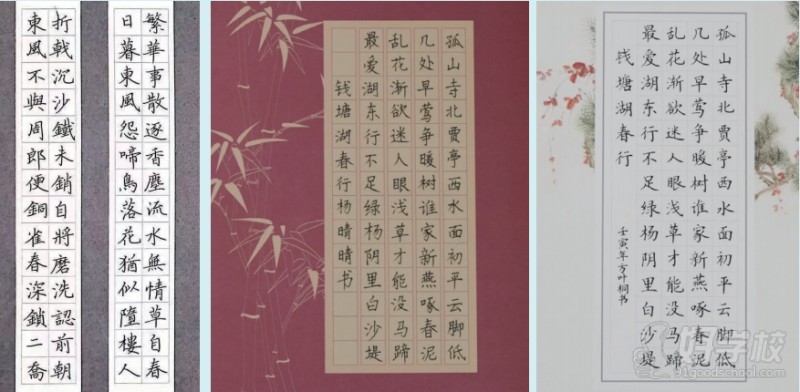 折戟沉沙鐵未銷自將磨洗認前朝
東風不與周郎便銅雀春深鎖二喬
繁華事散逐香塵流水無情草自春
日暮東風怨啼鳥落花猶似墮樓人
孤山寺北贾亭西水面初平云脚低
几处早莺争暖树谁家新燕啄春泥
乱花渐欲迷人眼浅草才能没马蹄
最爱湖东行不足绿杨阴里白沙堤
钱塘湖春行杨晴晴书
孤山寺北贾亭西水面初平云脚低
几处早莺争暖树谁家新燕啄春泥
乱花渐欲迷人眼浅草才能没马蹄
最爱湖东行不足绿杨阴里白沙堤
钱塘湖春行
壬寅年方叶桐书
好学校
91goodschool.com